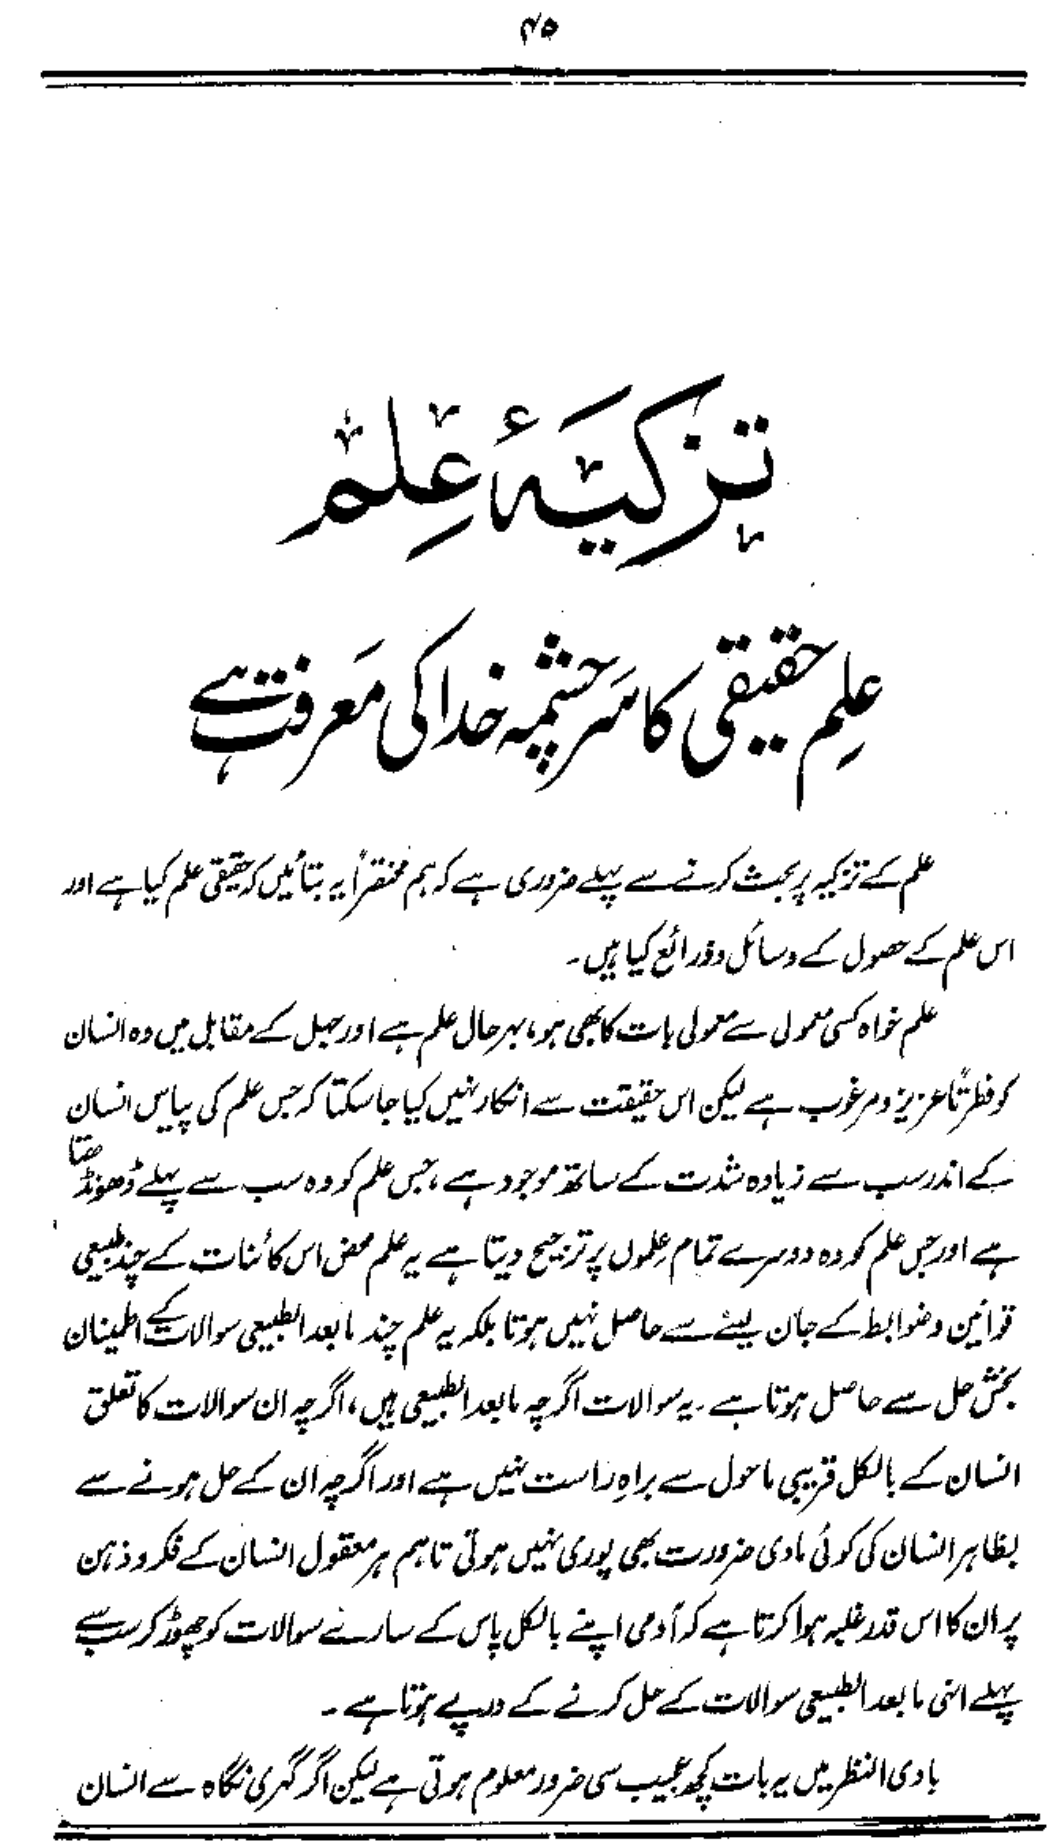 ۴۵
تزکیۂ علم
علمِ حقیقی کا سرچشمہ خدا کی معرفت ہے
علم کے تزکیہ پر بحث کرنے سے پہلے ضروری ہے کہ ہم مختصراً یہ بتائیں کہ حقیقی علم کیا ہے اور
اس علم کے حصول کے وسائل و ذرائع کیا ہیں۔
علم خواہ کسی معمولی سے معمولی بات کا بھی ہو، بہرحال علم ہے اور جہل کے مقابل میں وہ انسان
کو فطرتاً عزیز و مرغوب ہے لیکن اس حقیقت سے انکار نہیں کیا جاسکتا کہ جس علم کی پیاس انسان
کے اندر سب سے زیادہ شدت کے ساتھ موجود ہے، جس علم کو وہ سب سے پہلے ڈھونڈھتا
ہے اور جس علم کو وہ دوسرے تمام علموں پر ترجیح دیتا ہے یہ علم محض اس کائنات کے چند طبیعی
قوانین و ضوابط کے جان لینے سے حاصل نہیں ہوتا بلکہ یہ علم چند مابعد الطبیعی سوالات کے اطمینان
بخش حل سے حاصل ہوتا ہے۔ یہ سوالات اگرچہ مابعد الطبیعی ہیں، اگرچہ ان سوالات کا تعلق
انسان کے بالکل قریبی ماحول سے براہِ راست نہیں ہے اور اگرچہ ان کے حل ہونے سے
بظاہر انسان کی کوئی مادی ضرورت بھی پوری نہیں ہوتی تاہم ہر معقول انسان کے فکر و ذہن
پر ان کا اس قدر غلبہ ہوا کرتا ہے کہ آدمی اپنے بالکل پاس کے سارے سوالات کو چھوڑ کر سب سے
پہلے انہی مابعد الطبیعی سوالات کے حل کرنے کے درپے ہوتا ہے۔
بادی النظر میں یہ بات کچھ عجیب سی ضرور معلوم ہوتی ہے لیکن اگر گہری نگاہ سے انسان